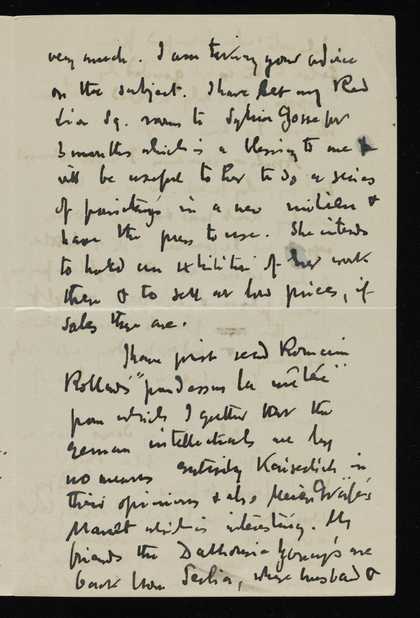 very much. I am taking your advice
on the subject. I have let my Red
Lion Sq. rooms to Sylvia Gosse for
3 months which is a blessing to me &
will be useful to her to do a series
of paintings in a new milieu &
have the press to use. She intends
to hold an exhibition of her work
there & to sell at low prices, if
sales there are.
I have just read Romain
Rolland's "par dessus la mêlée"
from which I gather that the
german intellectuals are by
no means entirely Kaiserlich in
their opinions & also Meier Graefe's
Manet which is interesting. My
friends the Dalhousie Youngs are
back from Serbia, whose husband &